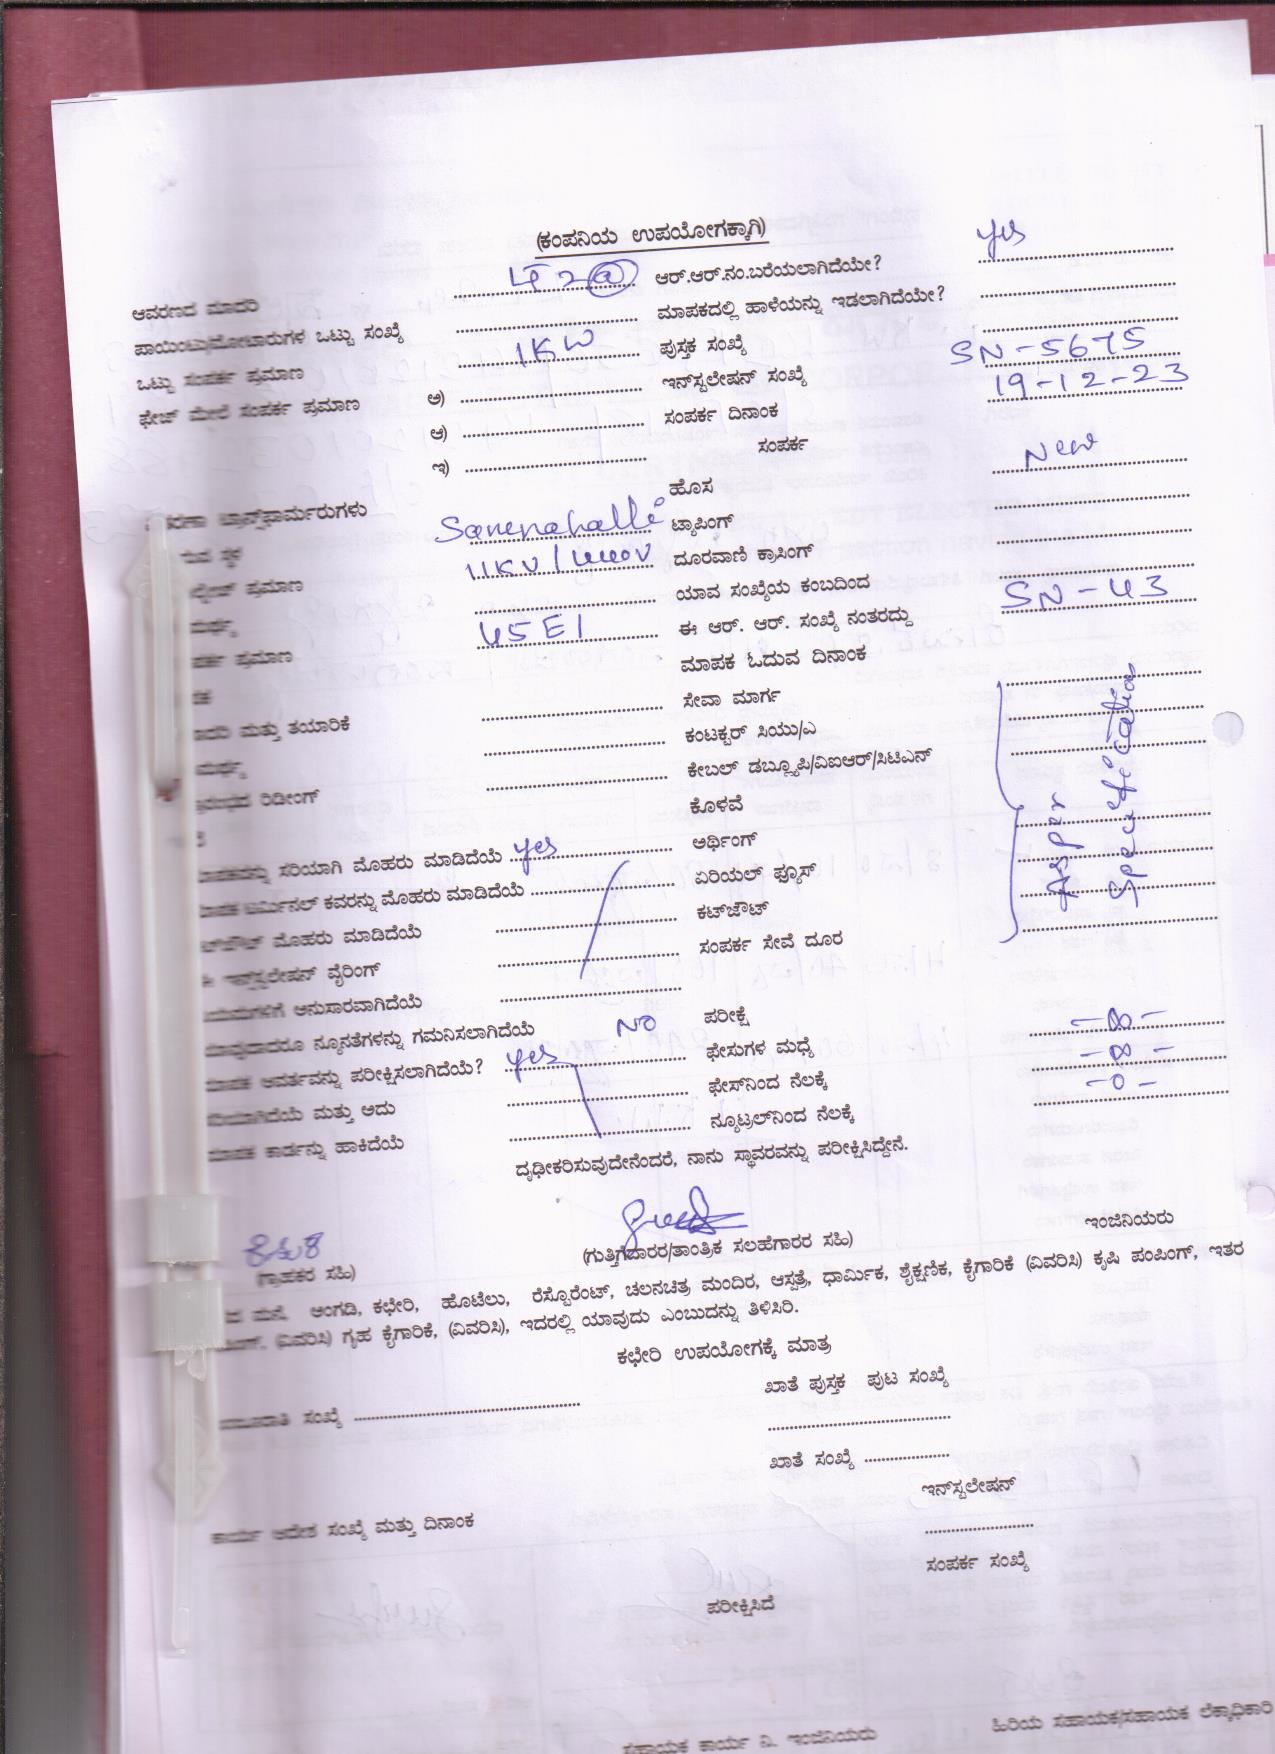 (ಕಂಪನಿಯ ಉಪಯೋಗಕ್ಕಾಗಿ)
ಆವರಣದ ಮಾದರಿ LT 2 (a) ಆರ್.ಆರ್.ನಂ.ಬರೆಯಲಾಗಿದೆಯೇ? yes
ಪಾಯಿಂಟು/ಮೋಟಾರುಗಳ ಒಟ್ಟು ಸಂಖ್ಯೆ ಮಾಪಕದಲ್ಲಿ ಹಾಳೆಯನ್ನು ಇಡಲಾಗಿದೆಯೇ?
ಒಟ್ಟು ಸಂಪರ್ಕ ಪ್ರಮಾಣ 1KW ಪುಸ್ತಕ ಸಂಖ್ಯೆ
ಫೇಜ್ ಮೇಲೆ ಸಂಪರ್ಕ ಪ್ರಮಾಣ ಅ) ಇನ್‌ಸ್ಟಲೇಷನ್ ಸಂಖ್ಯೆ SN-5675
ಆ) ಸಂಪರ್ಕ ದಿನಾಂಕ 19-12-23
ಇ) ಸಂಪರ್ಕ
ಹೊಸ New
ಟ್ರಾನ್ಸ್‌ಫಾರ್ಮರುಗಳು ಟ್ಯಾಪಿಂಗ್
ಸ್ಥಳ Sanenahalli ದೂರವಾಣಿ ಕ್ರಾಸಿಂಗ್
ಪ್ರಮಾಣ 11KV/440V ಯಾವ ಸಂಖ್ಯೆಯ ಕಂಬದಿಂದ
ಈ ಆರ್. ಆರ್. ಸಂಖ್ಯೆ ನಂತರದ್ದು SN-43
ಪ್ರಮಾಣ 45E1 ಮಾಪಕ ಓದುವ ದಿನಾಂಕ
ಸೇವಾ ಮಾರ್ಗ
ಮತ್ತು ತಯಾರಿಕೆ ಕಂಟಕ್ಟರ್ ಸಿಯು/ಎ
ಕೇಬಲ್ ಡಬ್ಲ್ಯೂಪಿ/ವಿಐಆರ್/ಸಿಟಿಎನ್
ರಿಡೀಂಗ್ ಕೊಳವೆ
As per Specification
ಅರ್ಥಿಂಗ್
ಸರಿಯಾಗಿ ಮೊಹರು ಮಾಡಿದೆಯೆ yes ಏರಿಯಲ್ ಫ್ಯೂಸ್
ಟರ್ಮಿನಲ್ ಕವರನ್ನು ಮೊಹರು ಮಾಡಿದೆಯೆ ಕಟ್‌ಔಟ್
ಮೊಹರು ಮಾಡಿದೆಯೆ ಸಂಪರ್ಕ ಸೇವೆ ದೂರ
ಇನ್‌ಸ್ಟಲೇಷನ್ ವೈರಿಂಗ್
ಅನುಸಾರವಾಗಿದೆಯೆ
ನ್ಯೂನತೆಗಳನ್ನು ಗಮನಿಸಲಾಗಿದೆಯೆ NO ಪರೀಕ್ಷೆ
ಮಾಪಕ ಆವರ್ತವನ್ನು ಪರೀಕ್ಷಿಸಲಾಗಿದೆಯೆ? yes ಫೇಸುಗಳ ಮಧ್ಯೆ -∞-
ಸರಿಯಾಗಿದೆಯೆ ಮತ್ತು ಅದು ಫೇಸ್‌ನಿಂದ ನೆಲಕ್ಕೆ -∞-
ಮಾಪಕ ಕಾರ್ಡನ್ನು ಹಾಕಿದೆಯೆ ನ್ಯೂಟ್ರಲ್‌ನಿಂದ ನೆಲಕ್ಕೆ -0-
ದೃಢೀಕರಿಸುವುದೇನೆಂದರೆ, ನಾನು ಸ್ಥಾವರವನ್ನು ಪರೀಕ್ಷಿಸಿದ್ದೇನೆ.
(ಗ್ರಾಹಕರ ಸಹಿ) (ಗುತ್ತಿಗೆದಾರರ/ತಾಂತ್ರಿಕ ಸಲಹೆಗಾರರ ಸಹಿ) ಇಂಜಿನಿಯರು
ಮನೆ, ಅಂಗಡಿ, ಕಛೇರಿ, ಹೊಟೆಲು, ರೆಸ್ಟೊರೆಂಟ್, ಚಲನಚಿತ್ರ ಮಂದಿರ, ಆಸ್ಪತ್ರೆ, ಧಾರ್ಮಿಕ, ಶೈಕ್ಷಣಿಕ, ಕೈಗಾರಿಕೆ (ವಿವರಿಸಿ) ಕೃಷಿ ಪಂಪಿಂಗ್, ಇತರ
(ವಿವರಿಸಿ) ಗೃಹ ಕೈಗಾರಿಕೆ, (ವಿವರಿಸಿ), ಇದರಲ್ಲಿ ಯಾವುದು ಎಂಬುದನ್ನು ತಿಳಿಸಿರಿ.
ಕಛೇರಿ ಉಪಯೋಗಕ್ಕೆ ಮಾತ್ರ
ಖಾತೆ ಪುಸ್ತಕ ಪುಟ ಸಂಖ್ಯೆ
ಸಂಖ್ಯೆ
ಖಾತೆ ಸಂಖ್ಯೆ
ಇನ್‌ಸ್ಟಲೇಷನ್
ಕಾರ್ಯ ಆದೇಶ ಸಂಖ್ಯೆ ಮತ್ತು ದಿನಾಂಕ
ಸಂಪರ್ಕ ಸಂಖ್ಯೆ
ಪರೀಕ್ಷಿಸಿದೆ
ಸಹಾಯಕ ಕಾರ್ಯ ನಿ. ಇಂಜಿನಿಯರು ಹಿರಿಯ ಸಹಾಯಕ/ಸಹಾಯಕ ಲೆಕ್ಕಾಧಿಕಾರಿ